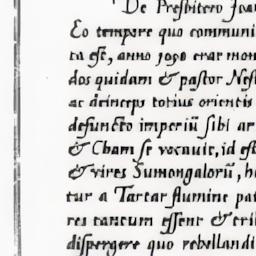 De Presbitero Joan
Eo tempore quo communi
ta est, anno 1090 erat mon
dos quidam & pastor Nest
ac deinceps totius orientis
defuncto imperiũ sibi ar
& Cham se vocauit, id est
& vires Sumongalorũ, h
tur a Tartar flumine pat
res tantum essent & tri
dispergere quo rebellandi